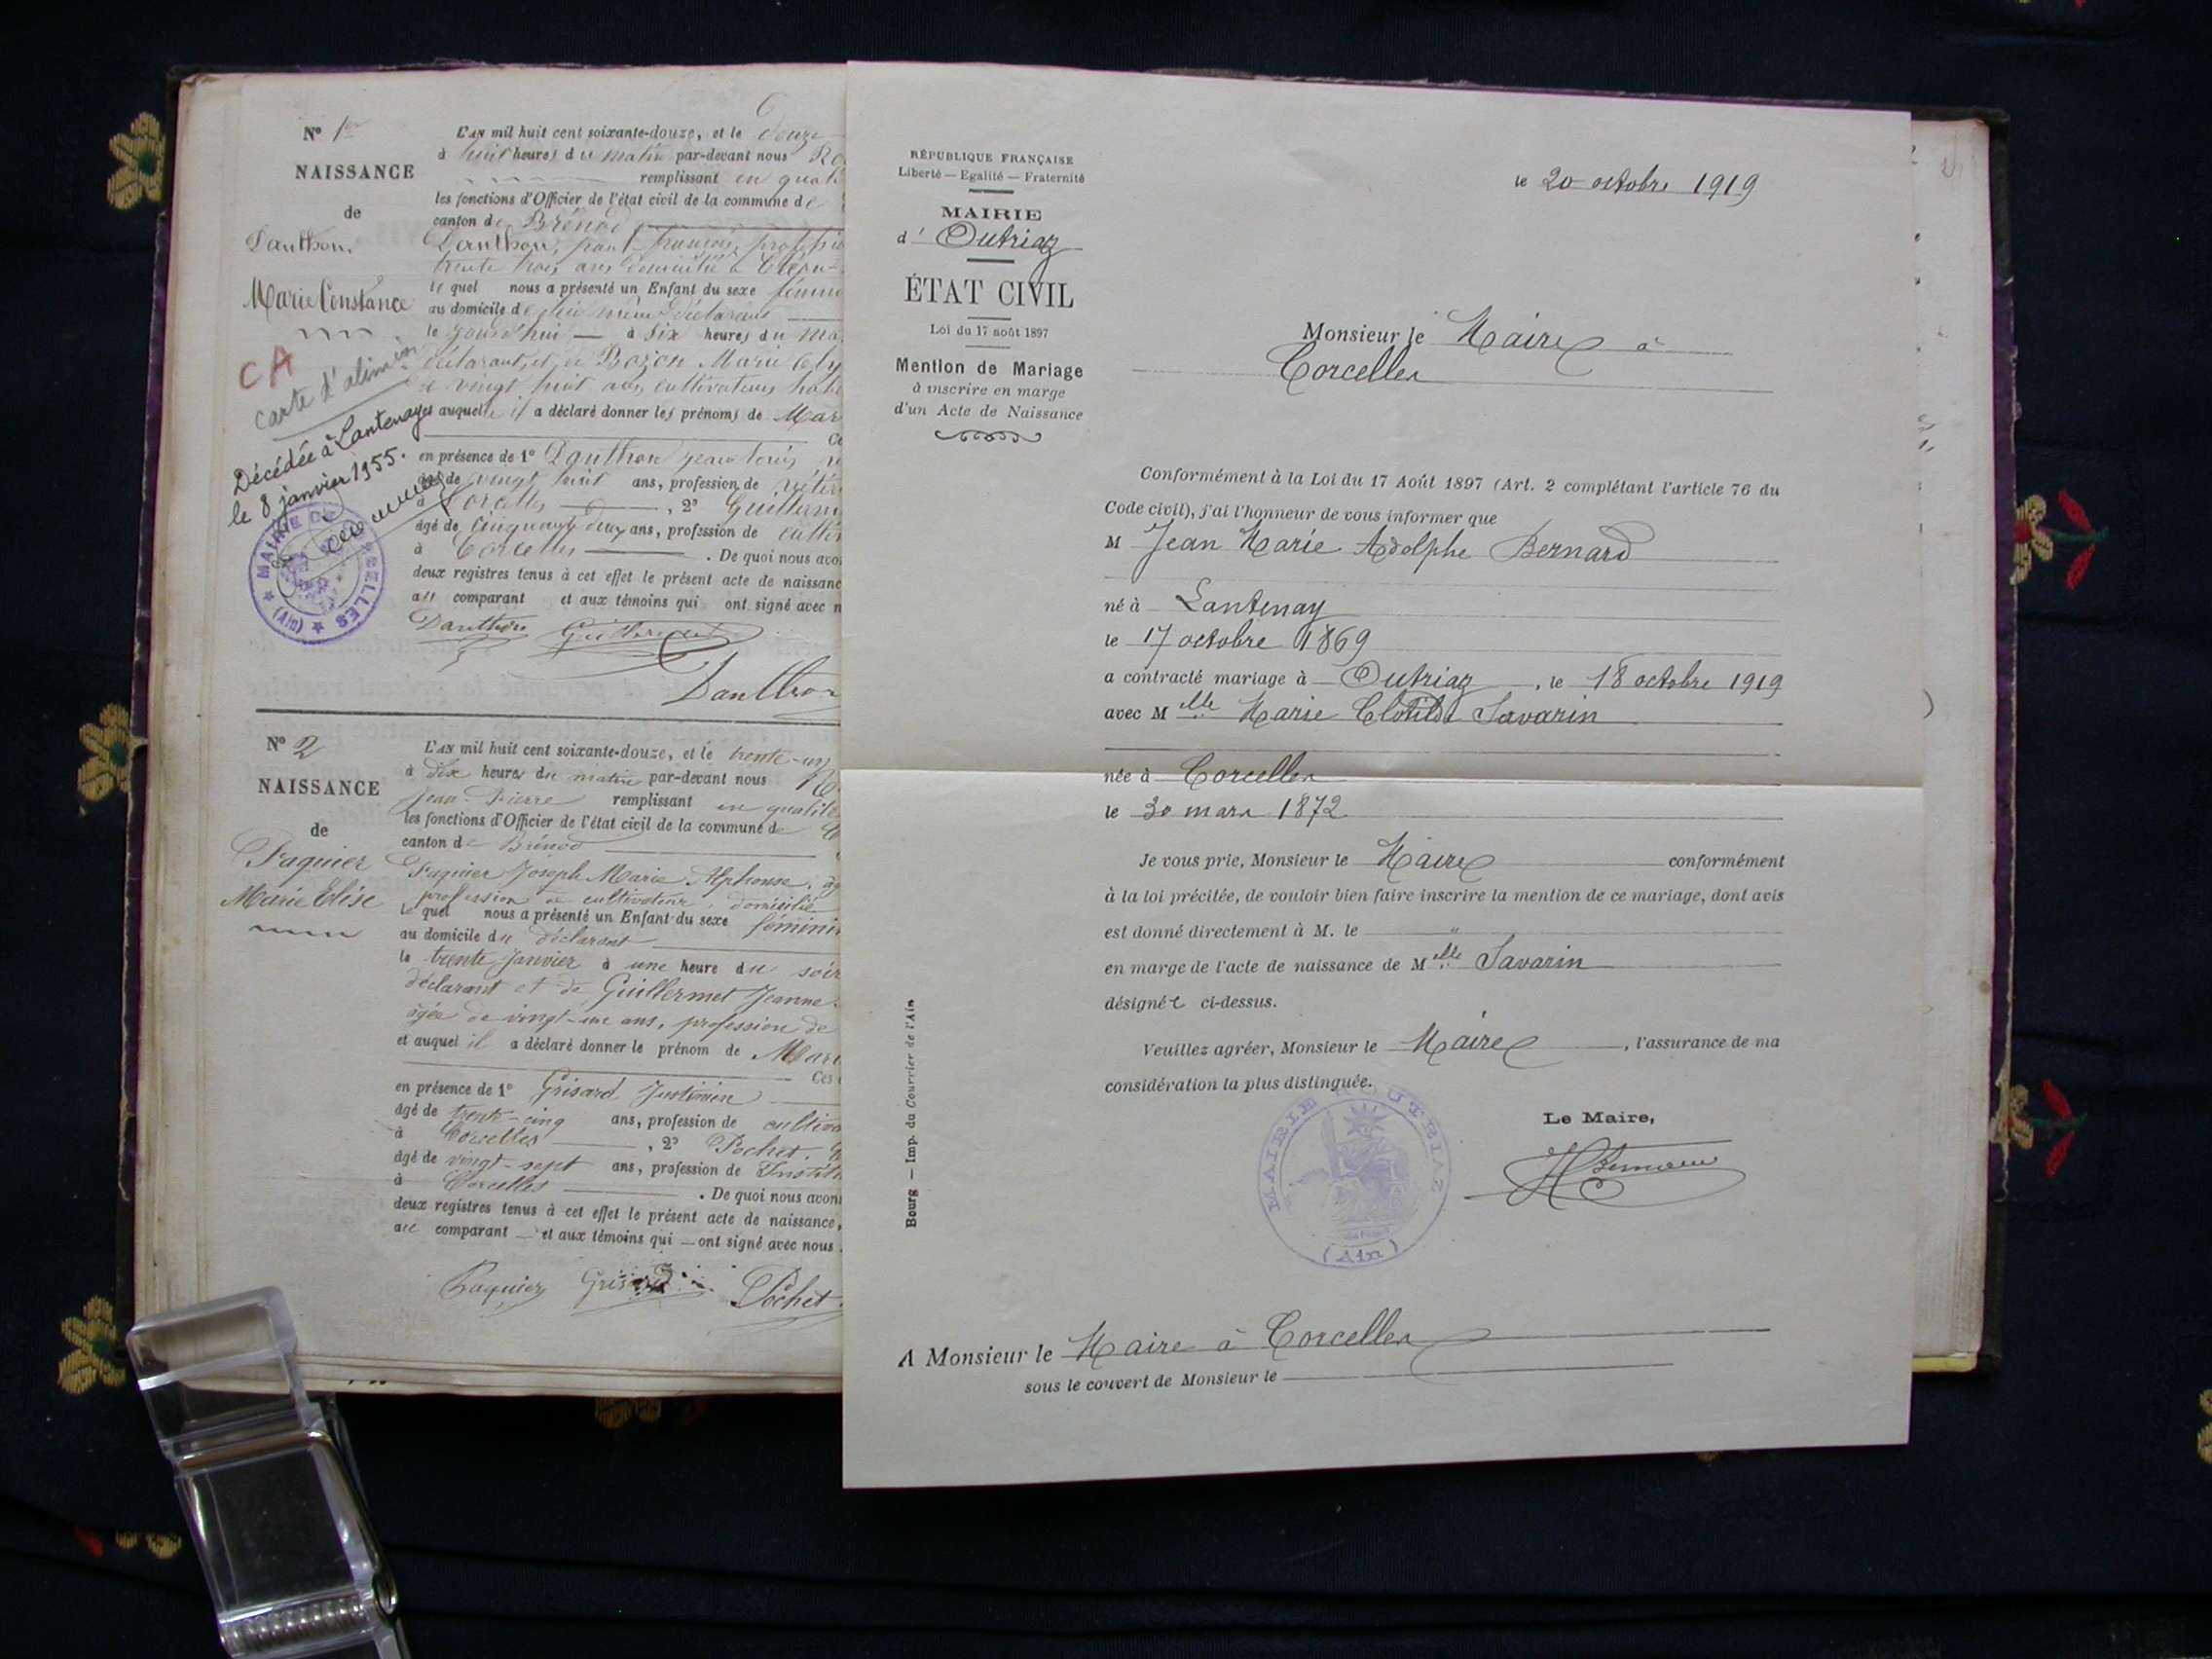 N° 1er
NAISSANCE
de
Danthon
Marie Constance
CA
carte d'alim
Décédée à Lantenay
le 8 janvier 1955.
MAIRIE DE CORCELLES
(Ain)
L'AN mil huit cent soixante-douze, et le douze
à huit heures du matin par-devant nous
remplissant en quali
les fonctions d'Officier de l'état civil de la commune de
canton de Brénod
Danthon
trente trois ans domicilié à
lequel nous a présenté un Enfant du sexe fémin
au domicile de
le jourd'hui à six heures du ma
déclarant, et de Bozon Marie
de vingt huit ans, cultivateurs
auquel il a déclaré donner les prénoms de Mar
en présence de 1° Danthon Jean Louis
âgé de vingt huit ans, profession de
à Corcelles , 2° Guillerm
âgé de cinquante deux ans, profession de culti
à Corcelles . De quoi nous avo
deux registres tenus à cet effet le présent acte de naissanc
au comparant et aux témoins qui ont signé avec n
Danthon Guillermet
Danthon
N° 2
NAISSANCE
de
Paquier
Marie Elise
L'AN mil huit cent soixante-douze, et le trente-un
à dix heures du matin par-devant nous
Jean-Pierre remplissant en qualité
les fonctions d'Officier de l'état civil de la commune de
canton de Brénod
Paquier Joseph Marie Alphonse, âg
profession de cultivateur, domicilié
lequel nous a présenté un Enfant du sexe fémini
au domicile du déclarant
le trente janvier à une heure du soir
déclarant et de Guillermet Jeanne
âgée de vingt-un ans, profession de
et auquel il a déclaré donner le prénom de Mari
Ces
en présence de 1° Grisard Justinien
âgé de trente-cinq ans, profession de cultiva
à Corcelles , 2° Pochet
âgé de vingt-sept ans, profession de Instit
à Corcelles . De quoi nous avons
deux registres tenus à cet effet le présent acte de naissance,
au comparant et aux témoins qui ont signé avec nous
Paquier Grisard Pochet
RÉPUBLIQUE FRANÇAISE
Liberté — Egalité — Fraternité
MAIRIE
d' Outriaz
ÉTAT CIVIL
Loi du 17 août 1897
Mention de Mariage
à inscrire en marge
d'un Acte de Naissance
le 20 octobre 1919
Monsieur le Maire à
Corcelles
Conformément à la Loi du 17 Août 1897 (Art. 2 complétant l'article 76 du
Code civil), j'ai l'honneur de vous informer que
M Jean Marie Adolphe Bernard
né à Lantenay
le 17 octobre 1869
a contracté mariage à Outriaz, le 18 octobre 1919
avec Melle Marie Clotilde Savarin
née à Corcelles
le 30 mars 1872
Je vous prie, Monsieur le Maire conformément
à la loi précitée, de vouloir bien faire inscrire la mention de ce mariage, dont avis
est donné directement à M. le "
en marge de l'acte de naissance de Melle Savarin
désignée ci-dessus.
Veuillez agréer, Monsieur le Maire, l'assurance de ma
considération la plus distinguée.
Le Maire,
MAIRIE D'OUTRIAZ
(Ain)
Bourg — Imp. du Courrier de l'Ain
A Monsieur le Maire à Corcelles
sous le couvert de Monsieur le